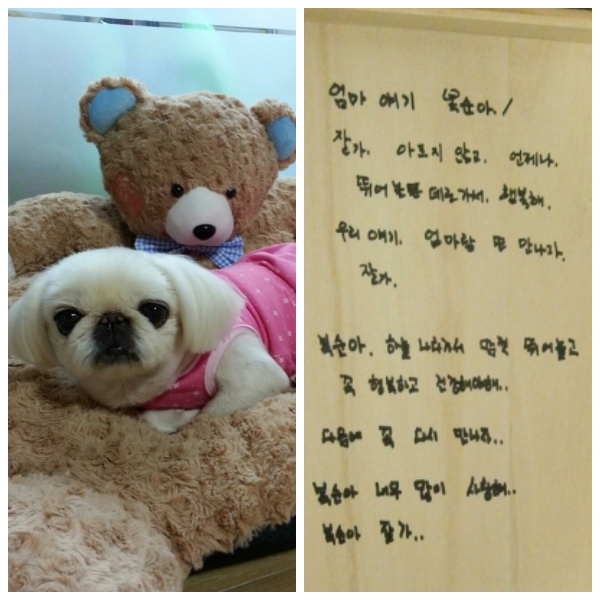 엄마 애기 복순아!
잘가. 아프지 않고. 언제나.
뛰어 데로가서. 행복해.
우리 애기. 엄마랑 또 만나자.
잘가.
복순아. 하늘 나라가서 맘껏 뛰어놀고
꼭 행복하고 건강해야해..
다음에 꼭 다시 만나자..
복순아 너무 많이 사랑해..
복순아 잘가..